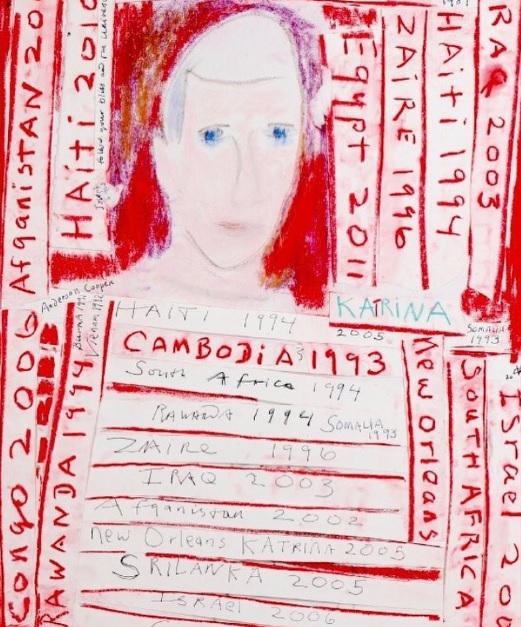 Afganistan 20
Haiti 2010
follow your bliss
Egypt 2011
ZAIRE 1996
HAiTi 1994
RAQ 2003
Anderson Cooper
KATRiNA
2005
SOMALIA
1993
Congo 2006
RAWANDA 1994
Burma
Vietnam
HAITI 1994
CAMBODiA 1993
South Africa 1994
RAWANDA 1994 SOMALIA
1993
ZAIRE 1996
IRAQ 2003
Afganistan 2002
New Orleans KATRINA 2005
SRILANKA 2005
ISRAEL 2006
New Orleans
SOUTH AFRICA
Israel 20